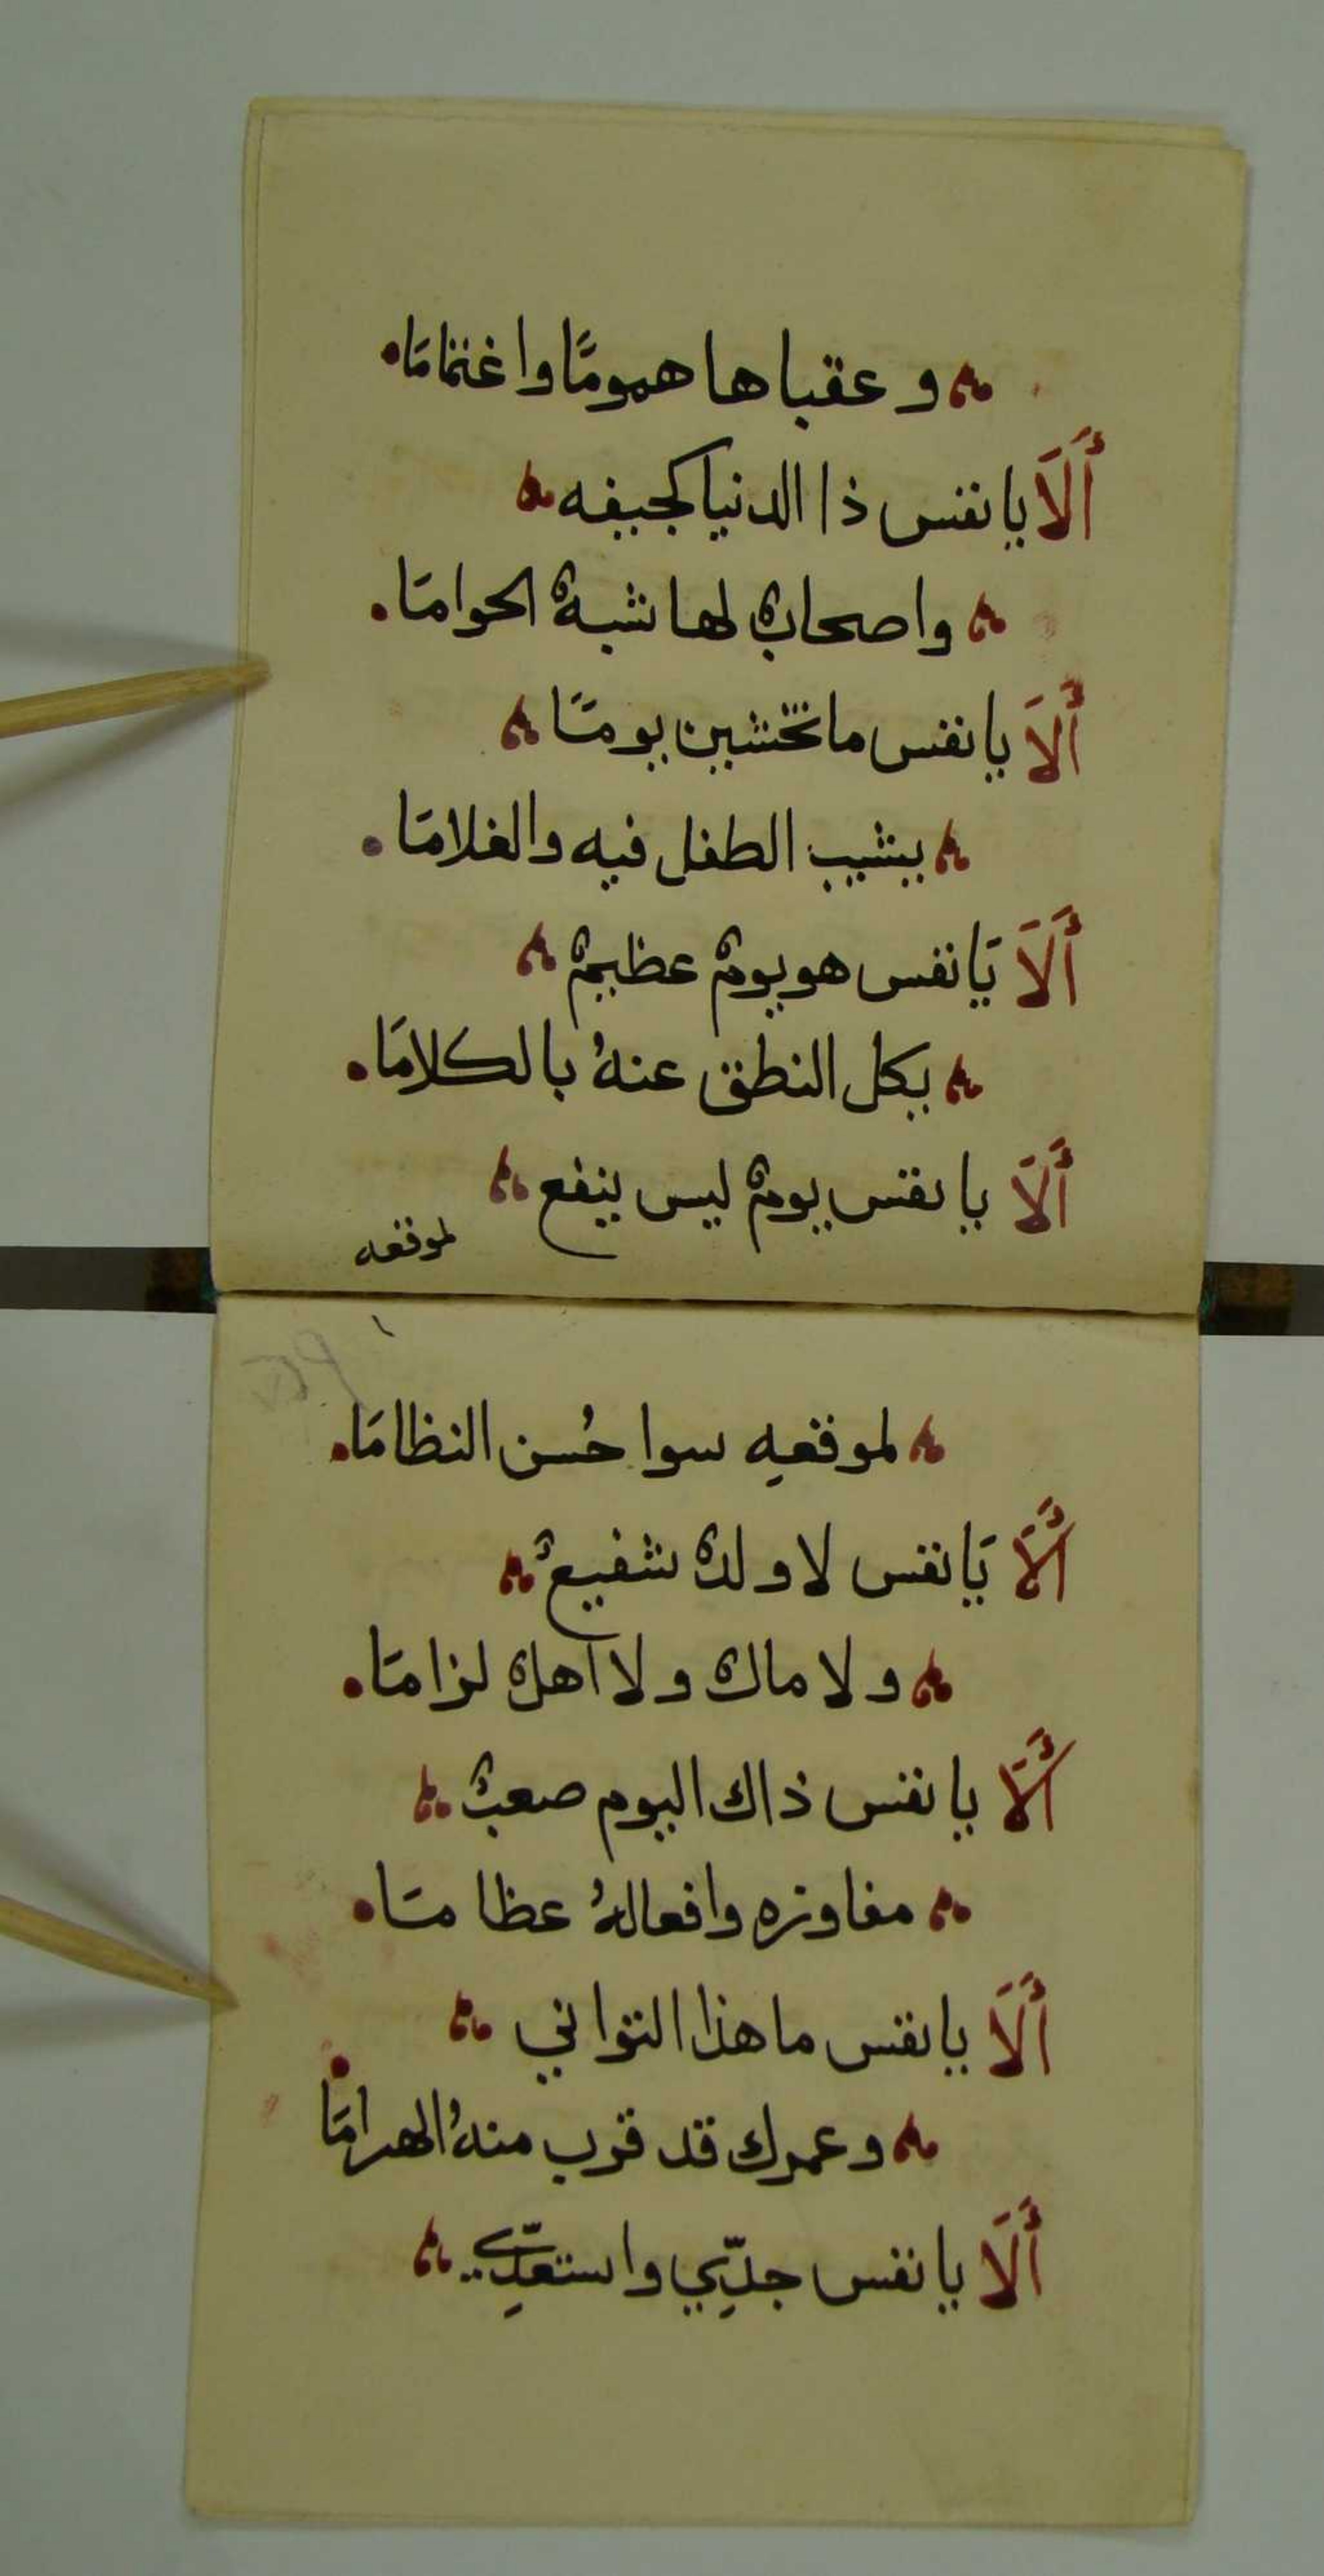 وعقباها همومًا واغتمامَا
أَلَا يا نفس ذا الدنيا كجيفه
واصحابٌ لها شبهُ الحوامَا
أَلَا يا نفس ما تخشين يومًا
يشيب الطفل فيه والغلامَا
أَلَا يَا نفس هو يومٌ عظيمٌ
يكل النطق عنهُ بالكلامَا
أَلَا يا نفس يومٌ ليس ينفع
لموقفه
لموقفهِ سوا حُسن النظامَا
أَلَا يَا نفس لا ولدٌ شفيعٌ
ولا مالٌ ولا اهلٌ لزامَا
أَلَا يا نفس ذاك اليوم صعبٌ
مفاوزه وافعالهُ عظامَا
أَلَا يا نفس ما هذا التواني
وعمرك قد قرب منهُ الهرامَا
أَلَا يا نفس جدِّي واستعدِّي